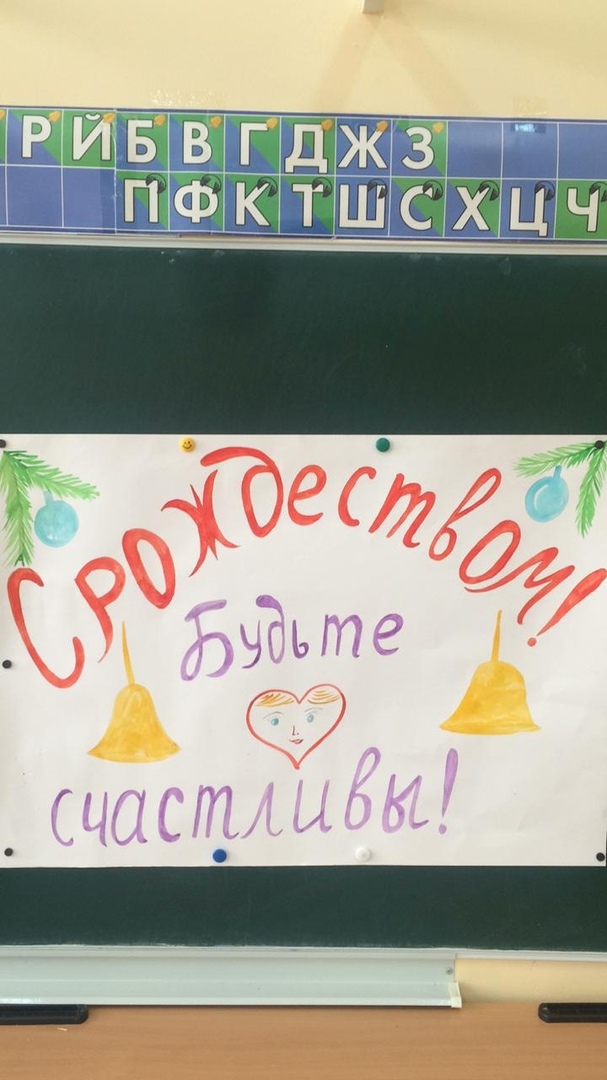 Р Й Б В Г Д Ж З
П Ф К Т Ш С Х Ц Ч
С РОЖДЕСТВОМ!
Будьте
счастливы!